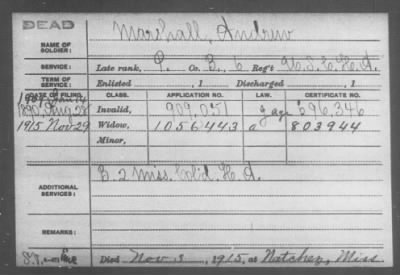 DEAD
NAME OF SOLDIER: Marshall, Andrew
SERVICE: Late rank, P. Co. B, 6 Reg't U.S.C.H.A.
TERM OF SERVICE: Enlisted , 1 Discharged , 1
DATE OF FILING. CLASS. APPLICATION NO. LAW. CERTIFICATE NO.
1890 Aug 28 Invalid, 909,051 696,346
1915 Nov 29 Widow, 1056443 a 803944
Minor,
ADDITIONAL SERVICES: B. 2 Miss. Col'd. H.A.
REMARKS:
Died Nov. 3, 1915, at Natchez, Miss.